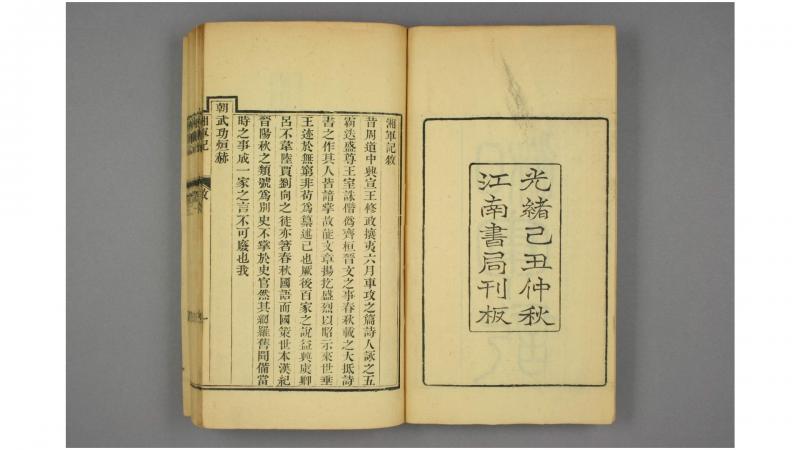 光緒己丑仲秋
江南書局刊板
湘軍記敘
昔周道中興宣王修政攘夷六月車攻之篇詩人詠之五
霸迭盛尊王室誅僭僞齊桓晉文之事春秋載之大抵詩
書之作其人皆諳掌故能文章揚扢盛烈以昭示來世垂
王迹於無窮非苟爲纂述已也厥後百家之說益興虞卿
呂不韋陸賈劉向之徒亦著春秋國語而國策世本漢紀
晉陽秋之類號爲別史不掌於史官然其網羅舊聞備當
時之事成一家之言不可廢也我
朝武功烜赫
湘軍記
敘
一